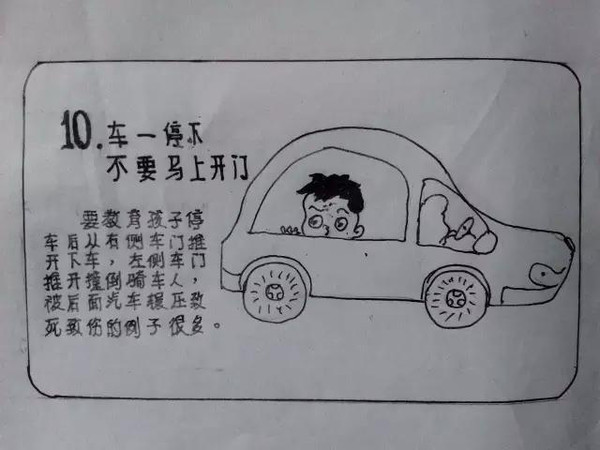 10.车一停不
不要马上开门
要教育孩子停
车后从有侧车门推
开下车，左侧车门
推开撞倒骑车人，
被后面汽车辗压致
死致伤的例子很多。